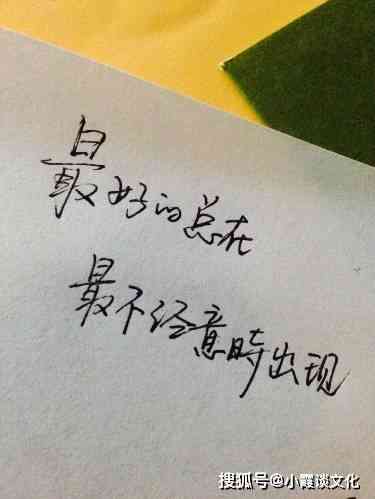 最好的总在
最不经意時出现
搜狐号@小霞谈文化